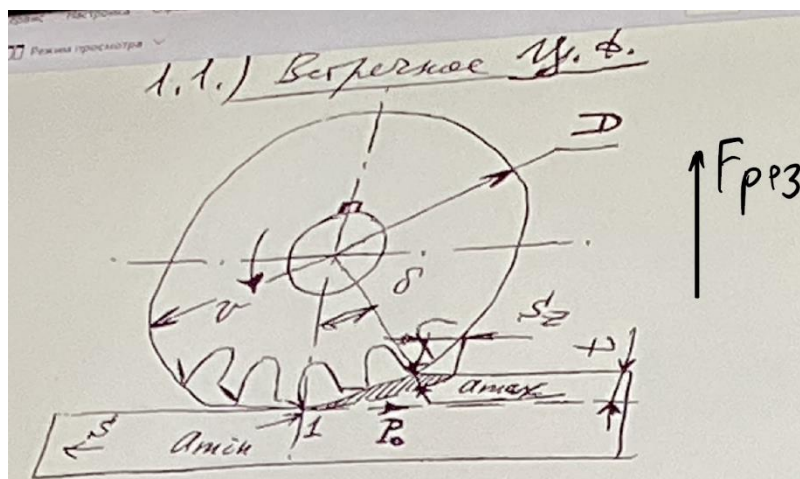 Режим просмотра
1.1.) Встречное ц.ф.
D
Fрез
v
δ
Sz
t
amax
S
amin
1
Po